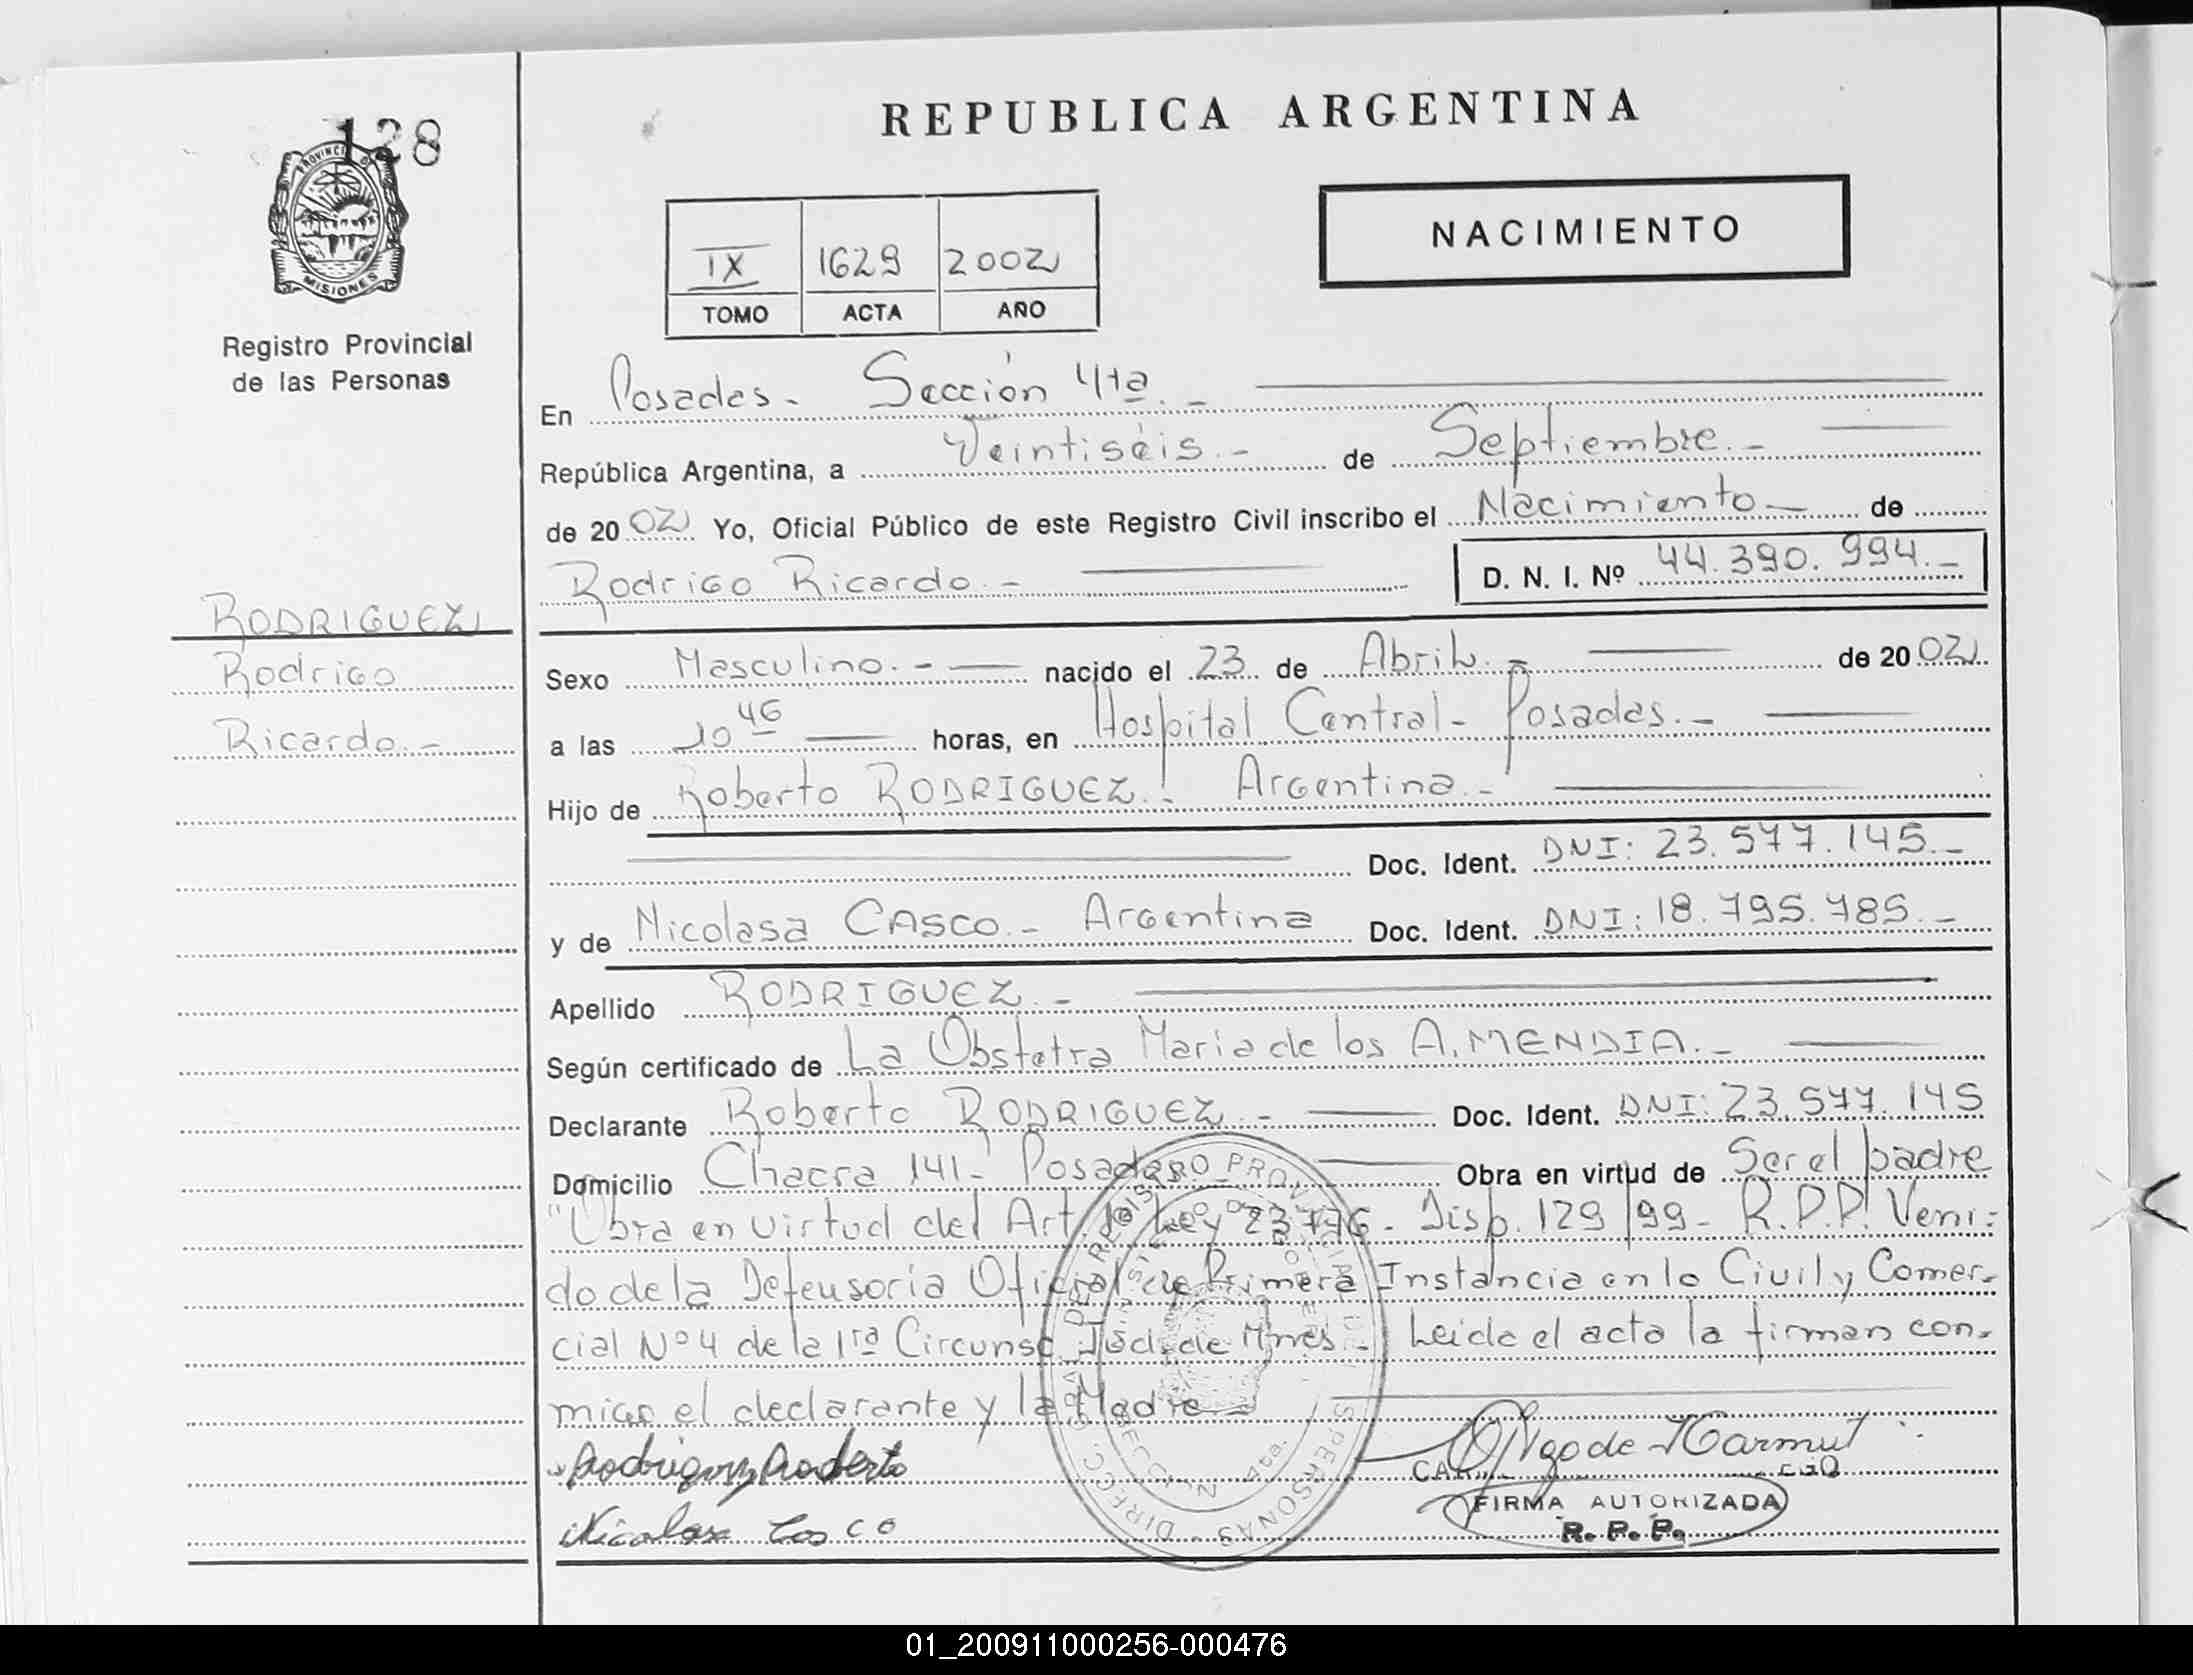 128
PROVINCIA DE
MISIONES
Registro Provincial
de las Personas
RODRIGUEZ
Rodrigo
Ricardo.-
REPUBLICA ARGENTINA
NACIMIENTO
IX 1629 2002
TOMO ACTA AÑO
En Posadas - Sección 4ta.-
República Argentina, a Veintiséis.- de Septiembre.-
de 2002 Yo, Oficial Público de este Registro Civil inscribo el Nacimiento de
Rodrigo Ricardo.- D. N. I. Nº 44.390.994.-
Sexo Masculino.- nacido el 23 de Abril.- de 2002
a las 10 46 horas, en Hospital Central - Posadas.-
Hijo de Roberto RODRIGUEZ.- Argentina.-
Doc. Ident. DNI: 23.577.145.-
y de Nicolasa CASCO.- Argentina Doc. Ident. DNI: 18.795.785.-
Apellido RODRIGUEZ.-
Según certificado de La Obstetra Maria de los A. MENDIA.-
Declarante Roberto RODRIGUEZ.- Doc. Ident. DNI: 23.577.145
Domicilio Chacra 141 - Posadas Obra en virtud de Ser el padre
"Obra en virtud del Art. Ley 23776 - Disp. 129/99 - R.P.P. Veni=
do de la Defensoría Oficial de Primera Instancia en lo Civil y Comer-
cial Nº 4 de la 1ra Circunsc. Jud. de Mnes.- Leida el acta la firman con-
migo el declarante y la Madre
Rodriguez Roberto
Nicolasa Casco
FIRMA AUTORIZADA
R. P. P.
01_200911000256-000476